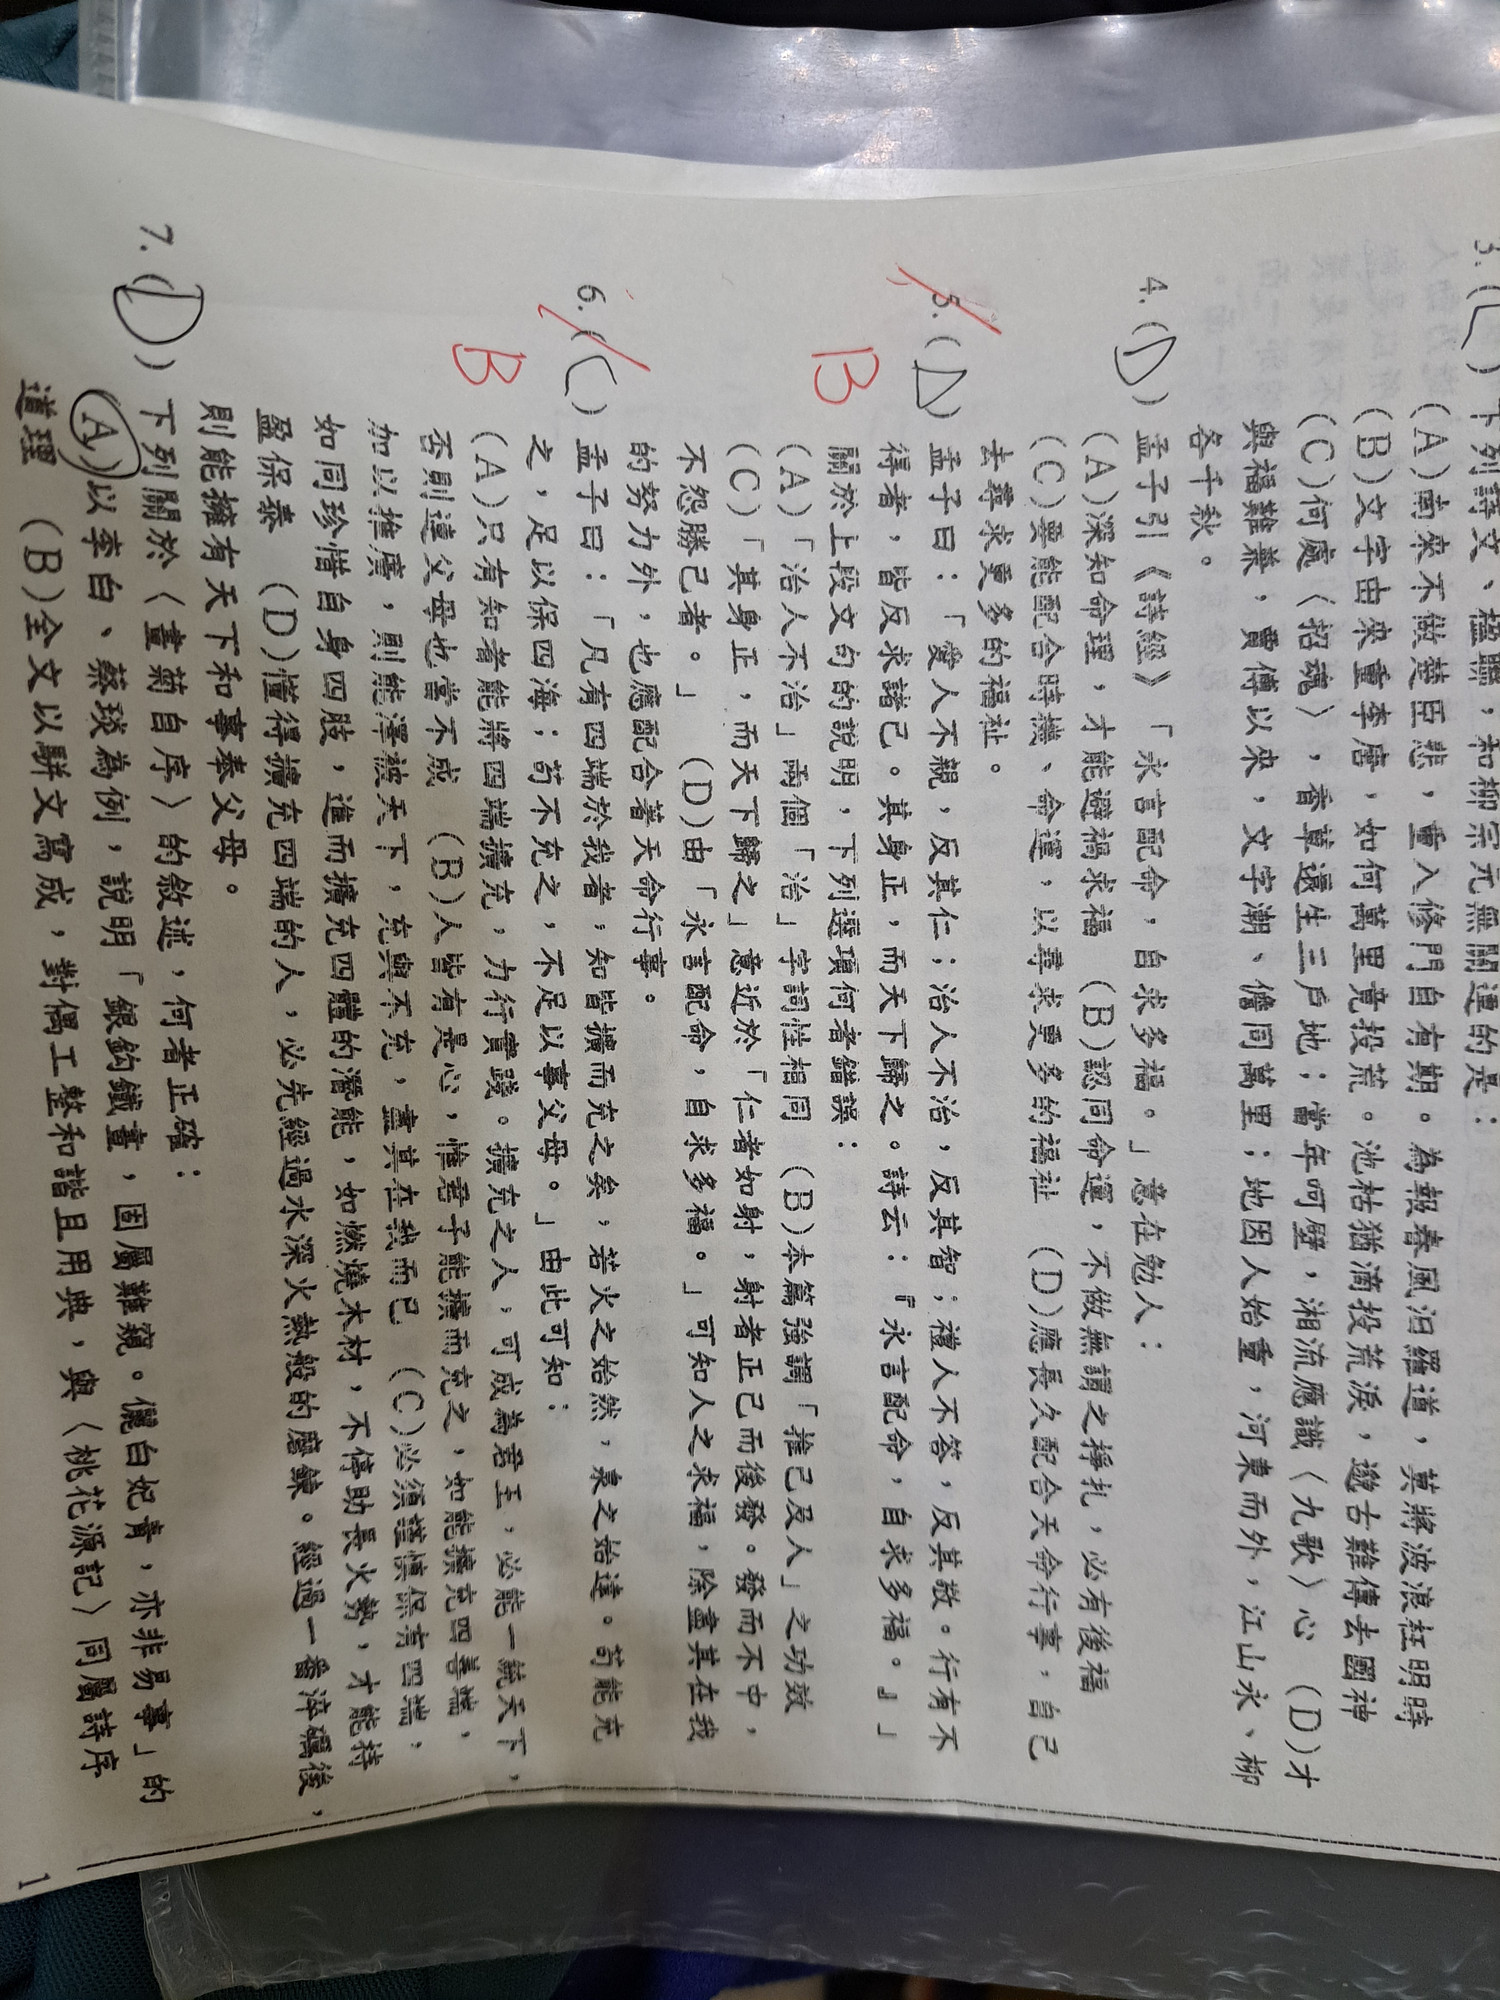 3.(C)下列詩文、楹聯，和柳宗元無關連的是：
(A)南來不做楚臣悲，重入修門自有期。為報春風汨羅道，莫將波浪枉明時
(B)文字由來重李唐，如何萬里竟投荒。池枯猶滴投荒淚，邈古難傳去國神
(C)何處〈招魂〉，香草還生三戶地；當年呵壁，湘流應識〈九歌〉心 (D)才
與福難兼，賈傅以來，文字潮、儋同萬里；地因人始重，河東而外，江山永、柳
各千秋。
4.(D)孟子引《詩經》「永言配命，自求多福。」意在勉人：
(A)深知命理，才能避禍求福 (B)認同命運，不做無謂之掙扎，必有後福
(C)要能配合時機、命運，以尋求更多的福祉 (D)應長久配合天命行事，自己
去尋求更多的福祉。
5.(D)孟子曰：「愛人不親，反其仁；治人不治，反其智；禮人不答，反其敬。行有不
得者，皆反求諸己。其身正，而天下歸之。詩云：『永言配命，自求多福。』」
B 關於上段文句的說明，下列選項何者錯誤：
(A)「治人不治」兩個「治」字詞性相同 (B)本篇強調「推己及人」之功效
(C)「其身正，而天下歸之」意近於「仁者如射，射者正己而後發。發而不中，
不怨勝己者。」 (D)由「永言配命，自求多福。」可知人之求福，除盡其在我
的努力外，也應配合著天命行事。
6.(C)孟子曰：「凡有四端於我者，知皆擴而充之矣，若火之始然，泉之始達。苟能充
之，足以保四海；苟不充之，不足以事父母。」由此可知：
B (A)只有知者能將四端擴充，力行實踐。擴充之人，可成為君王，必能一統天下，
否則連父母也當不成 (B)人皆有是心，惟君子能擴而充之，如能擴充四善端，
加以推廣，則能澤被天下，充與不充，盡其在我而已 (C)必須謹慎保有四端，
如同珍惜自身四肢，進而擴充四體的潛能，如燃燒木材，不停助長火勢，才能持
盈保泰 (D)懂得擴充四端的人，必先經過水深火熱般的磨鍊。經過一番淬礪後，
則能擁有天下和事奉父母。
7.(D)下列關於〈畫菊自序〉的敘述，何者正確：
(A)以李白、蔡琰為例，說明「銀鈎鐵畫，固屬難窺。儷白妃青，亦非易事」的
道理 (B)全文以駢文寫成，對偶工整和諧且用典，與〈桃花源記〉同屬詩序
1